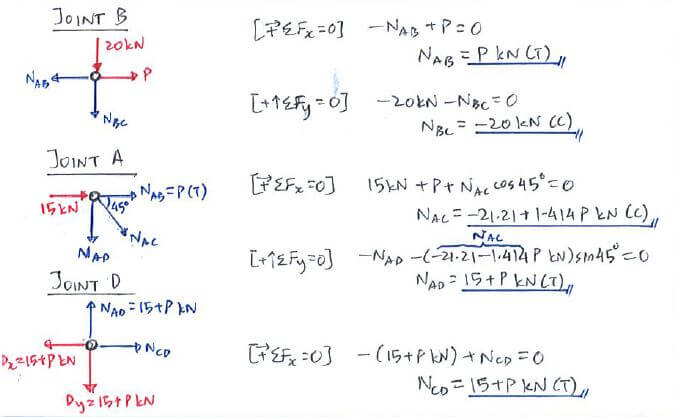 JOINT B
20kN
N_AB
P
N_BC
[→+ ΣFx=0] -N_AB + P = 0
N_AB = P kN (T)
[+↑ΣFy=0] -20kN - N_BC = 0
N_BC = -20 kN (C)
JOINT A
15kN
N_AB = P(T)
45°
N_AC
N_AD
[→+ ΣFx=0] 15kN + P + N_AC cos45° = 0
N_AC = -21.21 + 1.414 P kN (C)
N_AC
[+↑ΣFy=0] -N_AD - (-21.21 - 1.414 P kN) sin45° = 0
N_AD = 15 + P kN (T)
JOINT D
N_AD = 15 + P kN
Dx = 15 + P kN
N_CD
Dy = 15 + P kN
[→+ ΣFx=0] -(15 + P kN) + N_CD = 0
N_CD = 15 + P kN (T)